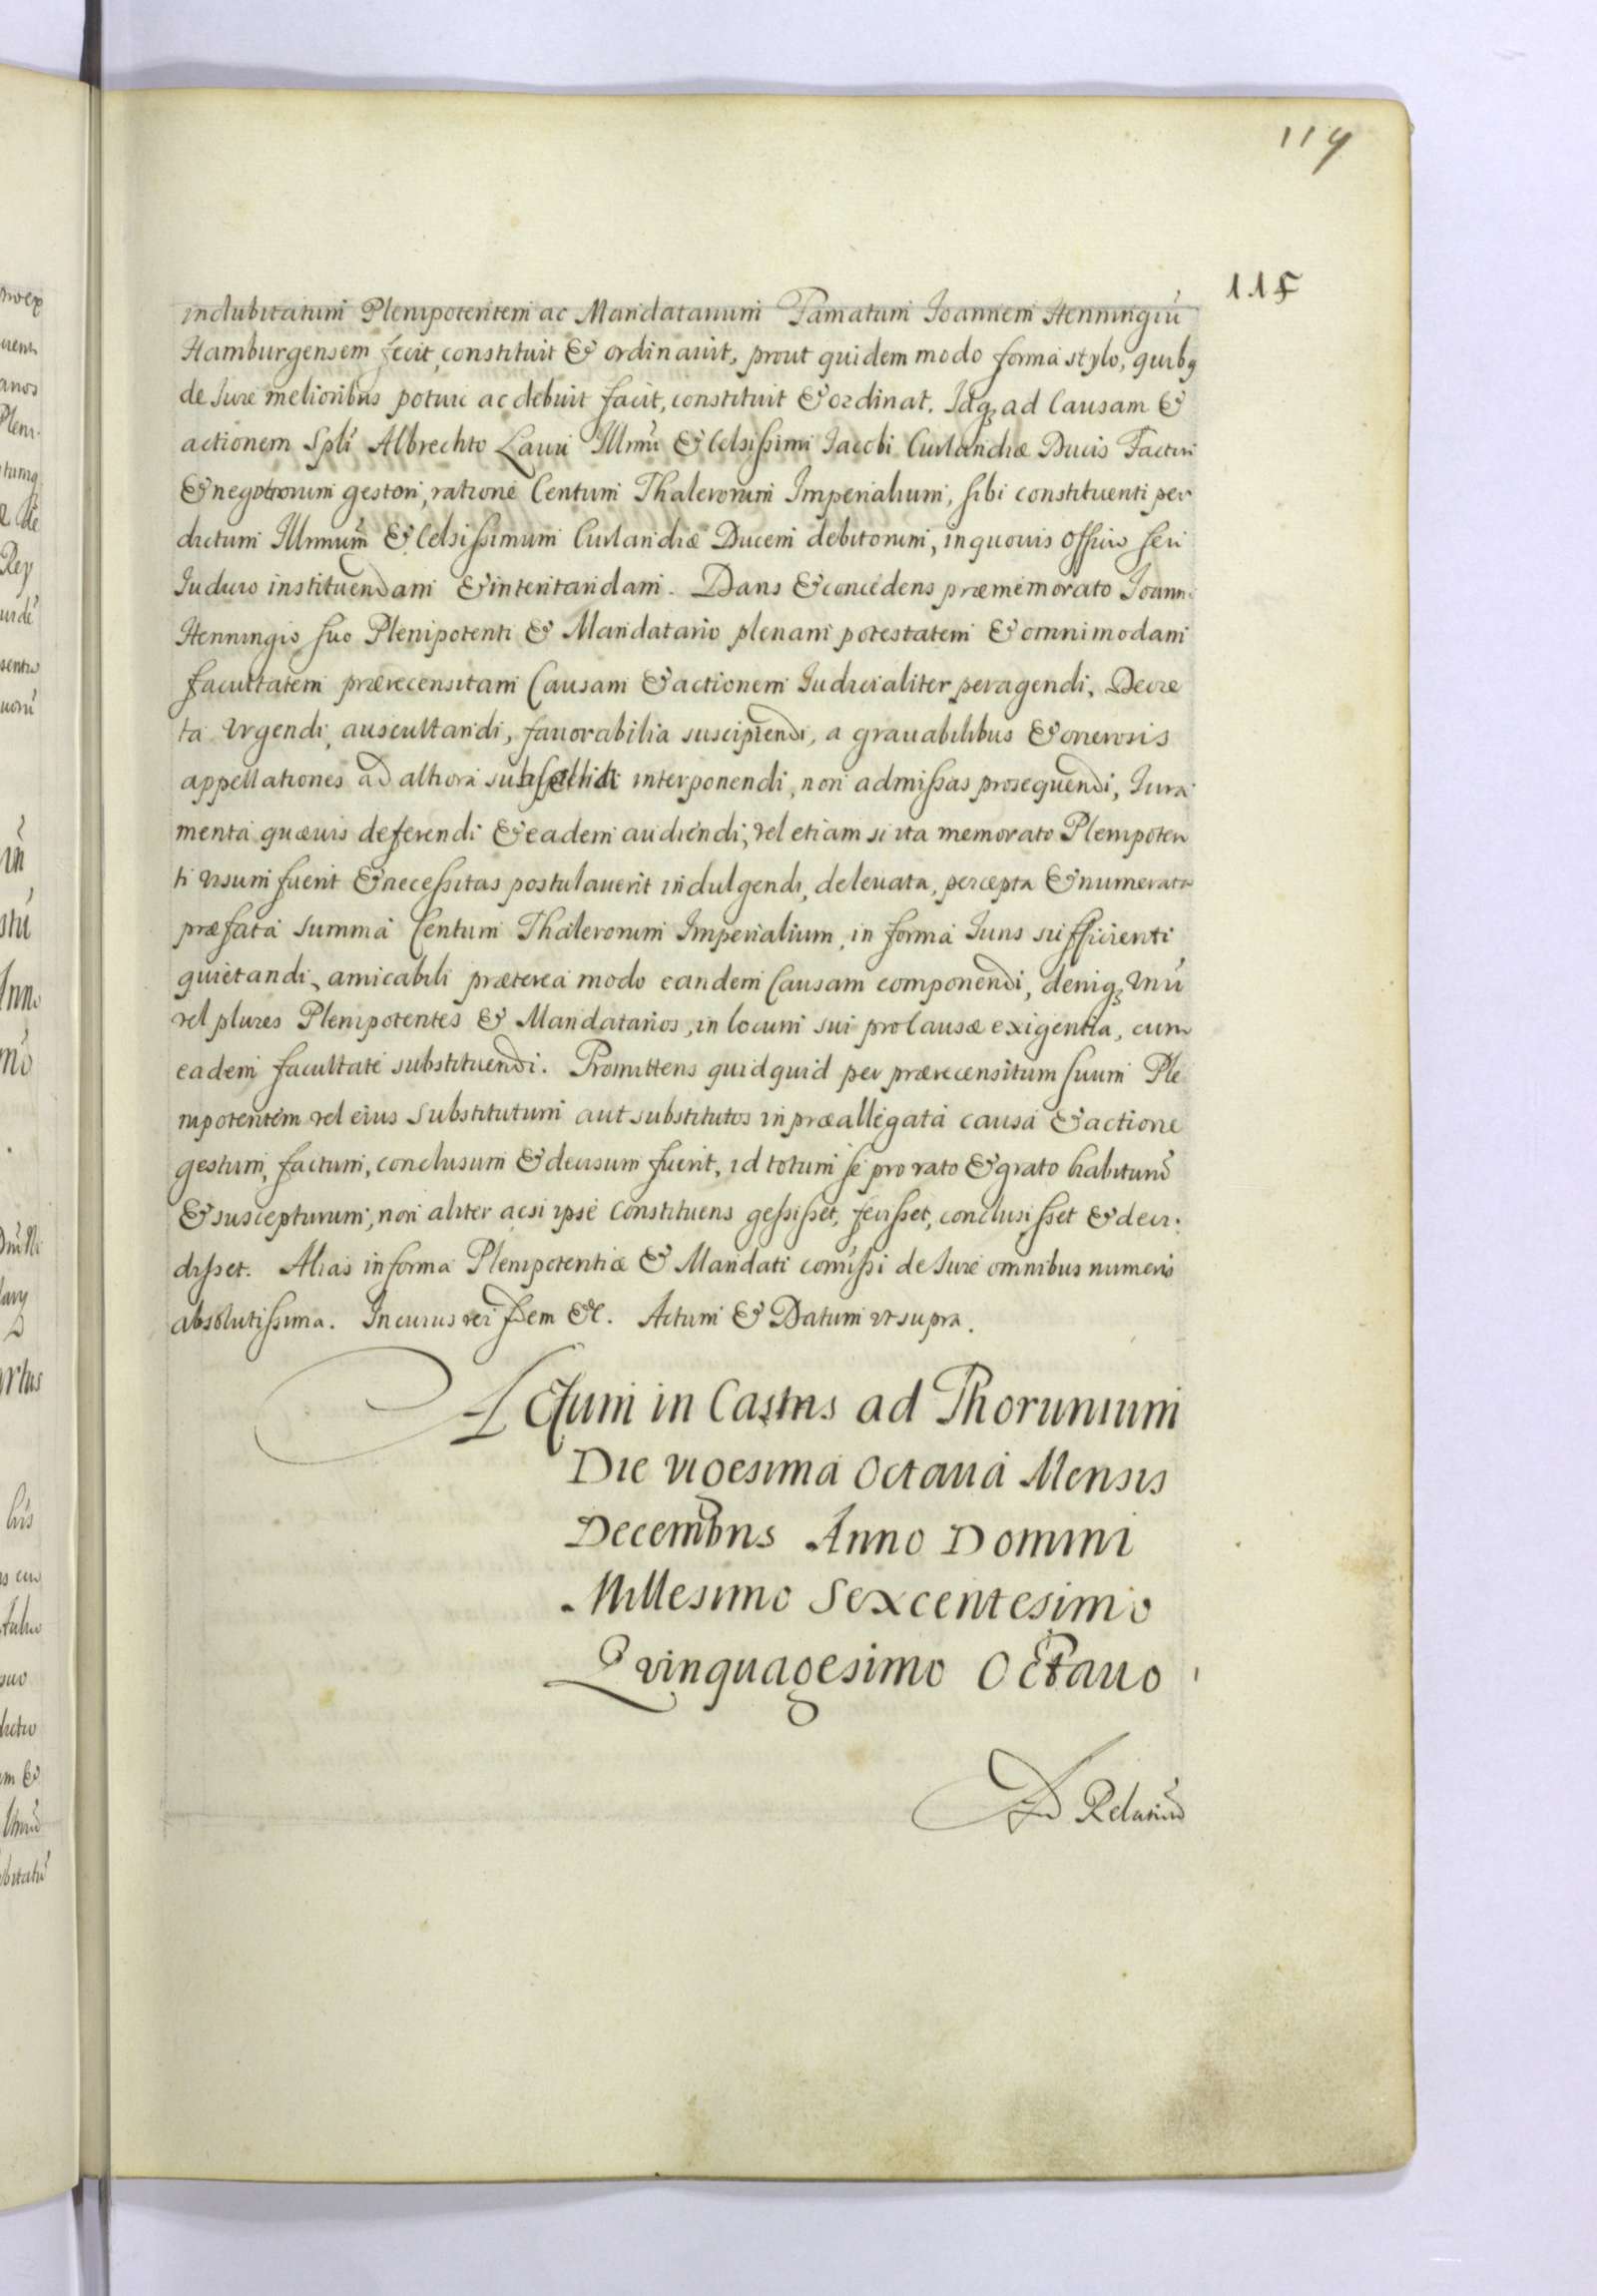 119
115
indubitatum Plenipotentem ac Mandatarium Famatum Joannem Henningiū
Hamburgensem fecit, constituit & ordinauit, prout quidem modo forma stylo, quibq
de Iure melioribus potuit ac debuit facit, constituit & ordinat. Idq; ad Causam &
actionem Splī Albrechto Laui Illmi & Celsissimi Iacobi Curlandiæ Ducis Factori
& negotiorum gestori, ratione Centum Thalerorum Imperialium, sibi constituenti per
dictum Illmum & Celsissimum Curlandiæ Ducem debitorum, in quouis Officio seu
Iudicio instituendam & intentandam. Dans & concedens præmemorato Joanni
Henningio suo Plenipotenti & Mandatario plenam potestatem & omnimodam
facultatem prærecensitam Causam & actionem Iudicialiter peragendi, Decre
ta Vrgendi, auscultandi, fauorabilia suscipiendi, a grauabilibus & onerosis
appellationes ad altiora subsellia interponendi, non admissas prosequendi, Iura
menta quæuis deferendi & eadem audiendi, vel etiam si ita memorato Plenipoten
ti visum fuerit & necessitas postulauerit indulgendi, de leuata, percepta & numerata
præfata summa Centum Thalerorum Imperialium, in forma Iuris sufficienti
quietandi, amicabili præterea modo eandem Causam componendi, deniq; vnū
vel plures Plenipotentes & Mandatarios, in locum sui pro Causæ exigentia, cum
eadem facultate substituendi. Promittens quidquid per prærecensitum suum Ple
nipotentem vel eius Substitutum aut substitutos in præallegata causa & actione
gestum, factum, conclusum & decisum fuerit, id totum se pro rato & grato habiturū
& suscepturum, non aliter acsi ipse Constituens gessisset, fecisset, conclusisset & deci:
disset. Alias in forma Plenipotentiæ & Mandati comissi de Iure omnibus numeris
absolutissima. In cuius rei fidem &c. Actum & Datum vt supra.
Actum in Castris ad Thorunium
Die vigesima Octaua Mensis
Decembris Anno Domini
Millesimo Sexcentesimo
Qvinquagesimo Octauo
Ad Relationē